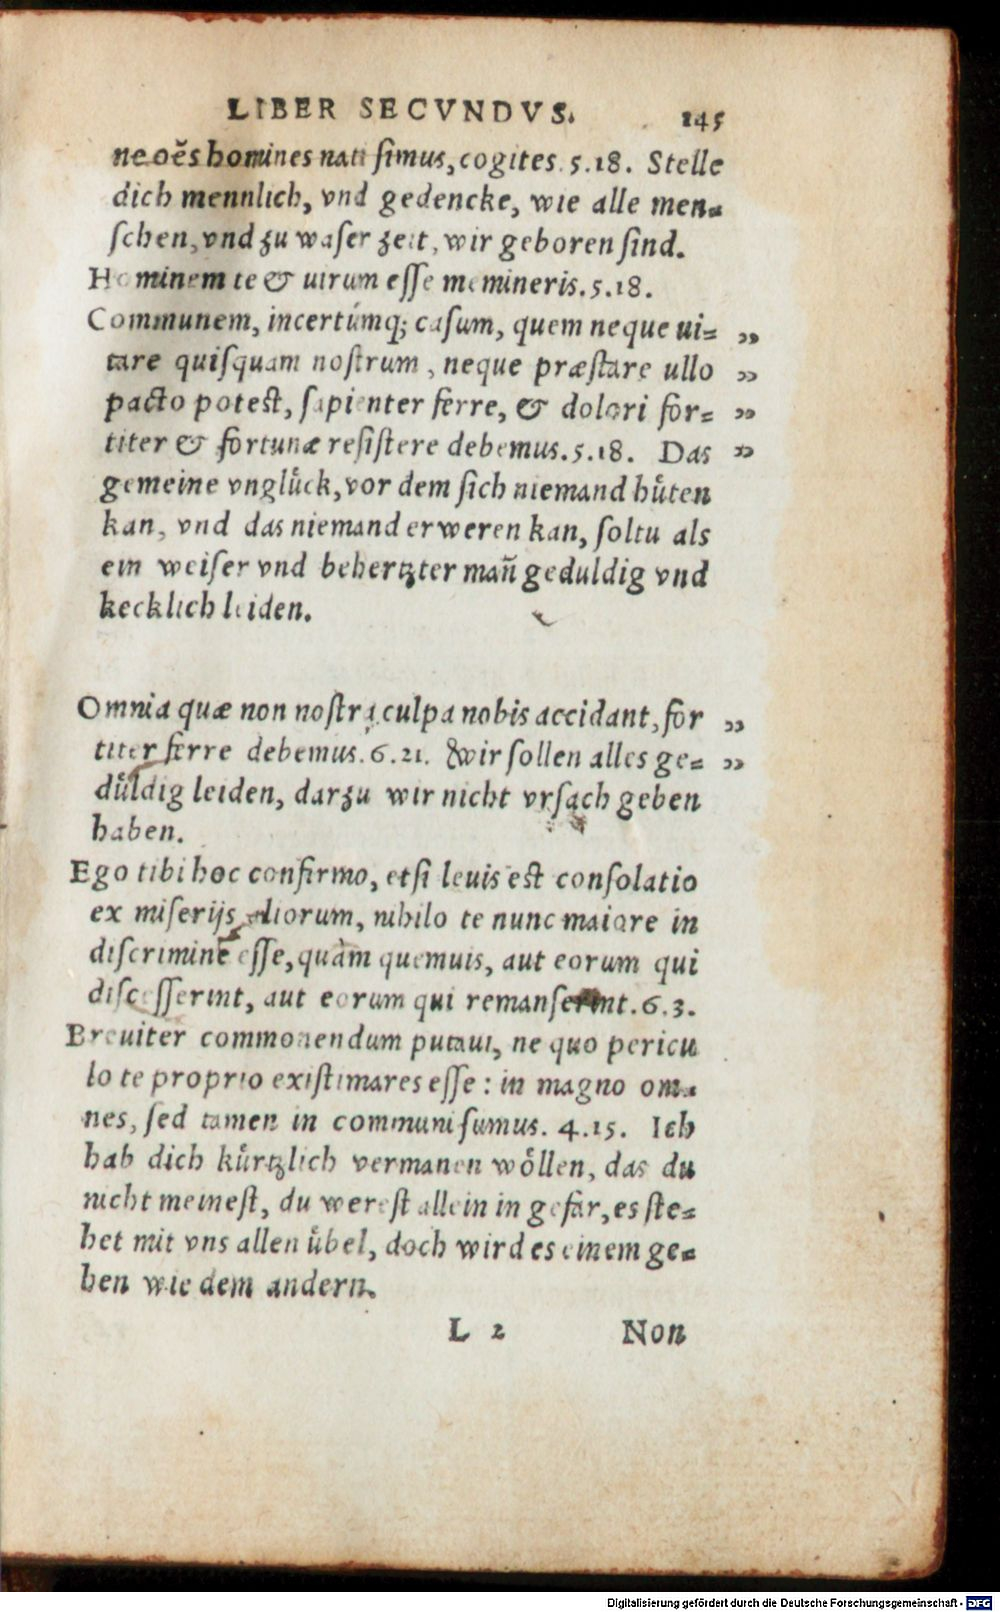 LIBER SECVNDVS. 145
ne oẽs homines nati ſimus, cogites. 5.18. Stelle
dich mennlich, vnd gedencke, wie alle men-
ſchen, vnd zu waſer zeit, wir geboren ſind.
Hominem te & uirum eſſe memineris. 5.18.
Communem, incertúmq; caſum, quem neque ui- „
tare quiſquam noſtrum, neque præſtare ullo „
pacto poteſt, ſapienter ferre, & dolori for- „
titer & fortunæ reſiſtere debemus. 5.18. Das „
gemeine vnglůck, vor dem ſich niemand hůten
kan, vnd das niemand erweren kan, ſoltu als
ein weiſer vnd behertzter mañ geduldig vnd
kecklich leiden.
Omnia quæ non noſtra culpa nobis accidant, for „
titer ferre debemus. 6.21. Wir ſollen alles ge- „
důldig leiden, darzu wir nicht vrſach geben
haben.
Ego tibi hoc confirmo, etſi leuis eſt conſolatio
ex miſerijs aliorum, nihilo te nunc maiore in
diſcrimine eſſe, quàm quemuis, aut eorum qui
diſceſſerint, aut eorum qui remanſerint. 6.3.
Breuiter commonendum putaui, ne quo pericu
lo te proprio exiſtimares eſſe: in magno om-
nes, ſed tamen in communi ſumus. 4.15. Ich
hab dich kůrtzlich vermanen wőllen, das du
nicht meineſt, du wereſt allein in gefar, es ſte-
het mit vns allen ůbel, doch wird es einem ge-
hen wie dem andern.
L 2 Non
Digitalisierung gefördert durch die Deutsche Forschungsgemeinschaft - DFG